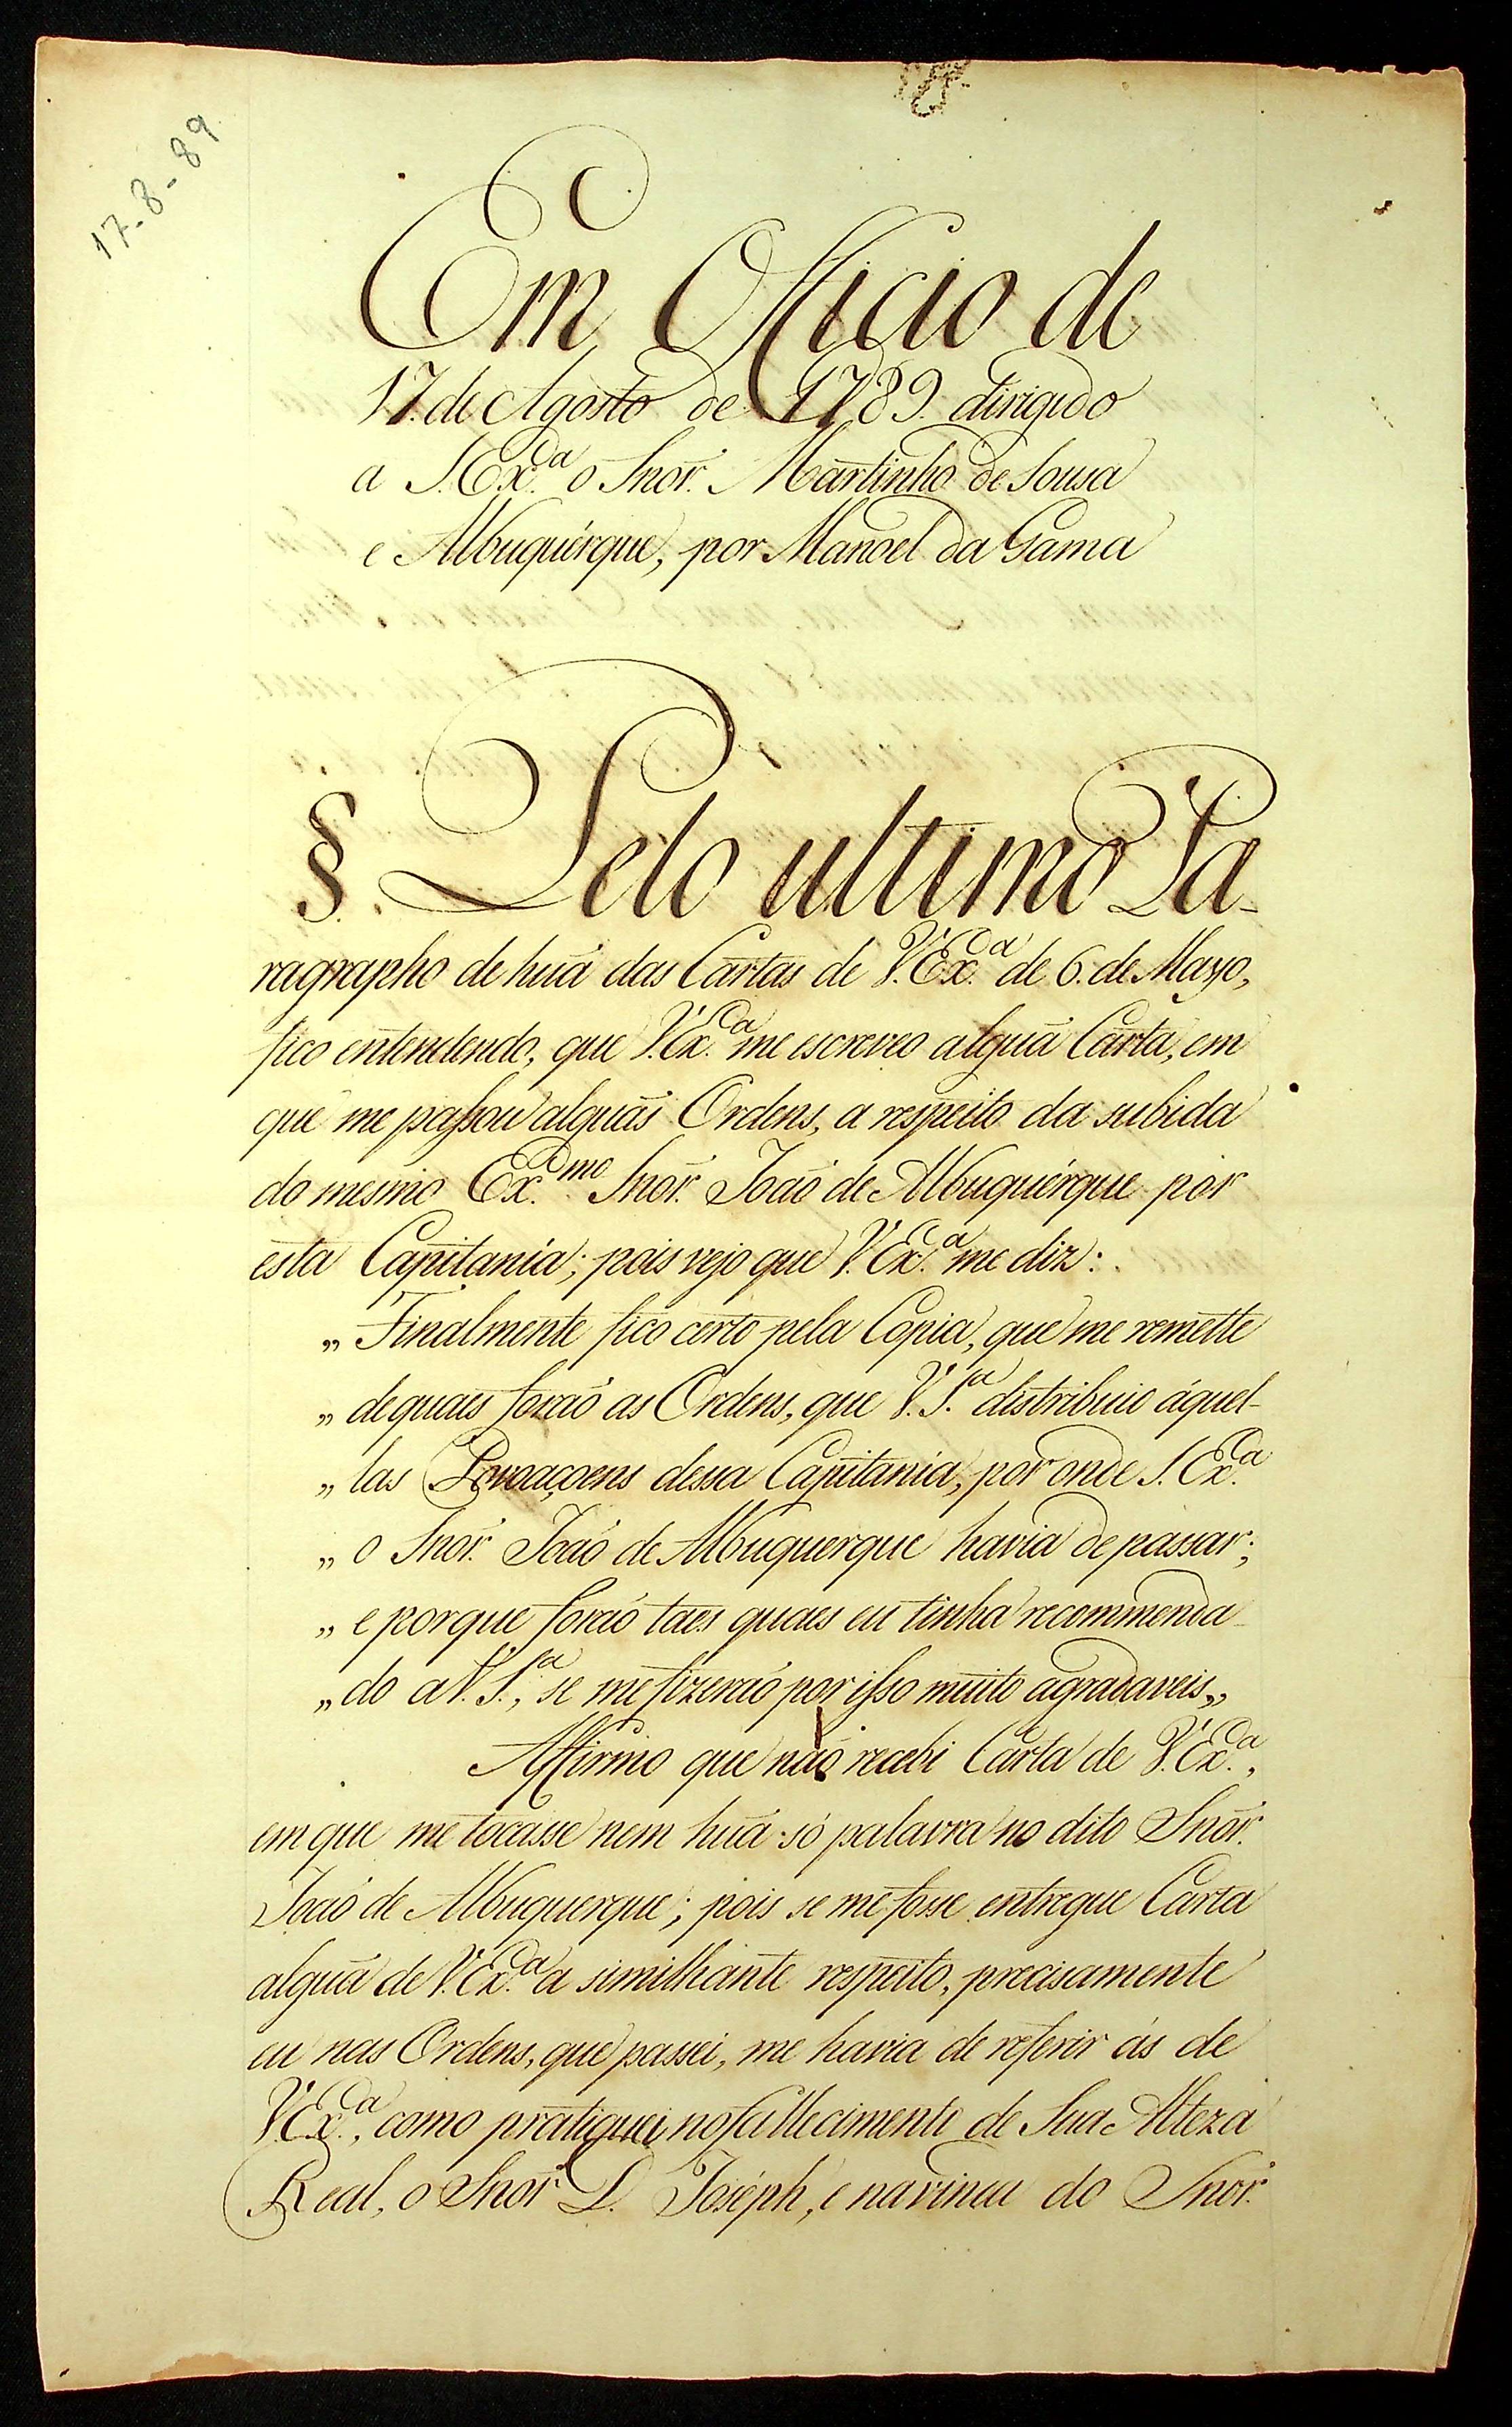 17-8-89
Em Officio de
17. de Agosto de 1789. dirigido
a S. Ex.ª o Snõr. Martinho de Sousa
e Albuquérque, por Manoel da Gama
§. Pelo ultimo Pa-
ragrapho de huã das Cartas de V. Ex.ª de 6. de Mayo,
fico entendendo, que V. Ex.ª me escreveo alguã Carta, em
que me passou alguãs Ordens, a respeito da subida
do mesmo Ex.mo Snõr. João de Albuquérque por
esta Capitania; pois vejo que V. Ex.ª me diz:
„ Finalmente fico certo pela Copia, que me remette
„ de quaes forão as Ordens, que V. S.ª distribuio áquel-
„ las Povoaçoens dessa Capitania, por onde S. Ex.ª
„ o Snõr. João de Albuquerque havia de passar;
„ e porque forão taes quaes eu tinha recommenda-
„ do a V. S.ª, se me fizerão por isso muito agradaveis„
Affirmo que não recebi Carta de V. Ex.ª,
em que me tocasse nem huã só palavra no dito Snõr.
João de Albuquerque; pois se me fosse entregue Carta
alguã de V. Ex.ª a similhante respeito, precisamente
eu nas Ordens, que passei, me havia de referir ás de
V. Ex.ª, como pratiquei no fallecimento de Sua Alteza
Real, o Snõr D. Joséph, e na vinda do Snõr.